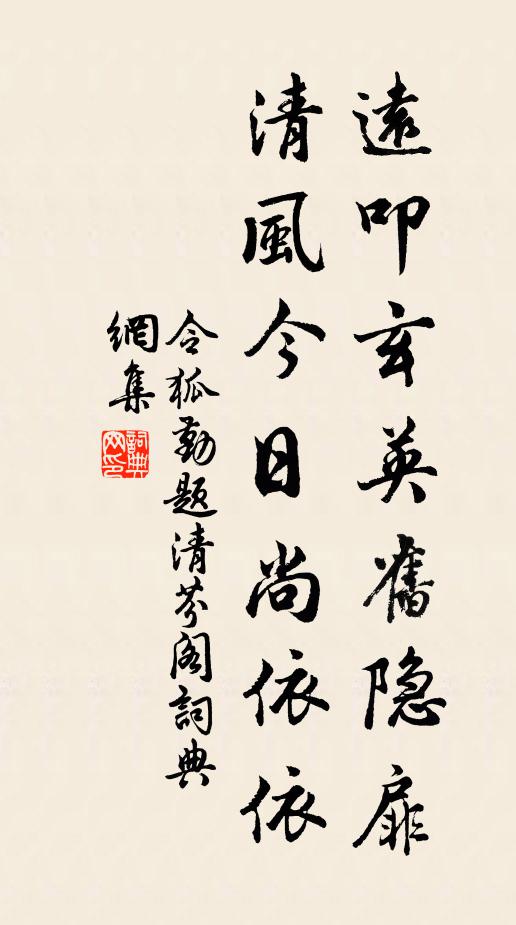 遠叩玄英舊隐扉
清風今日尚依依
令狐勤題清芬阁詞典
網集
詞典
网印